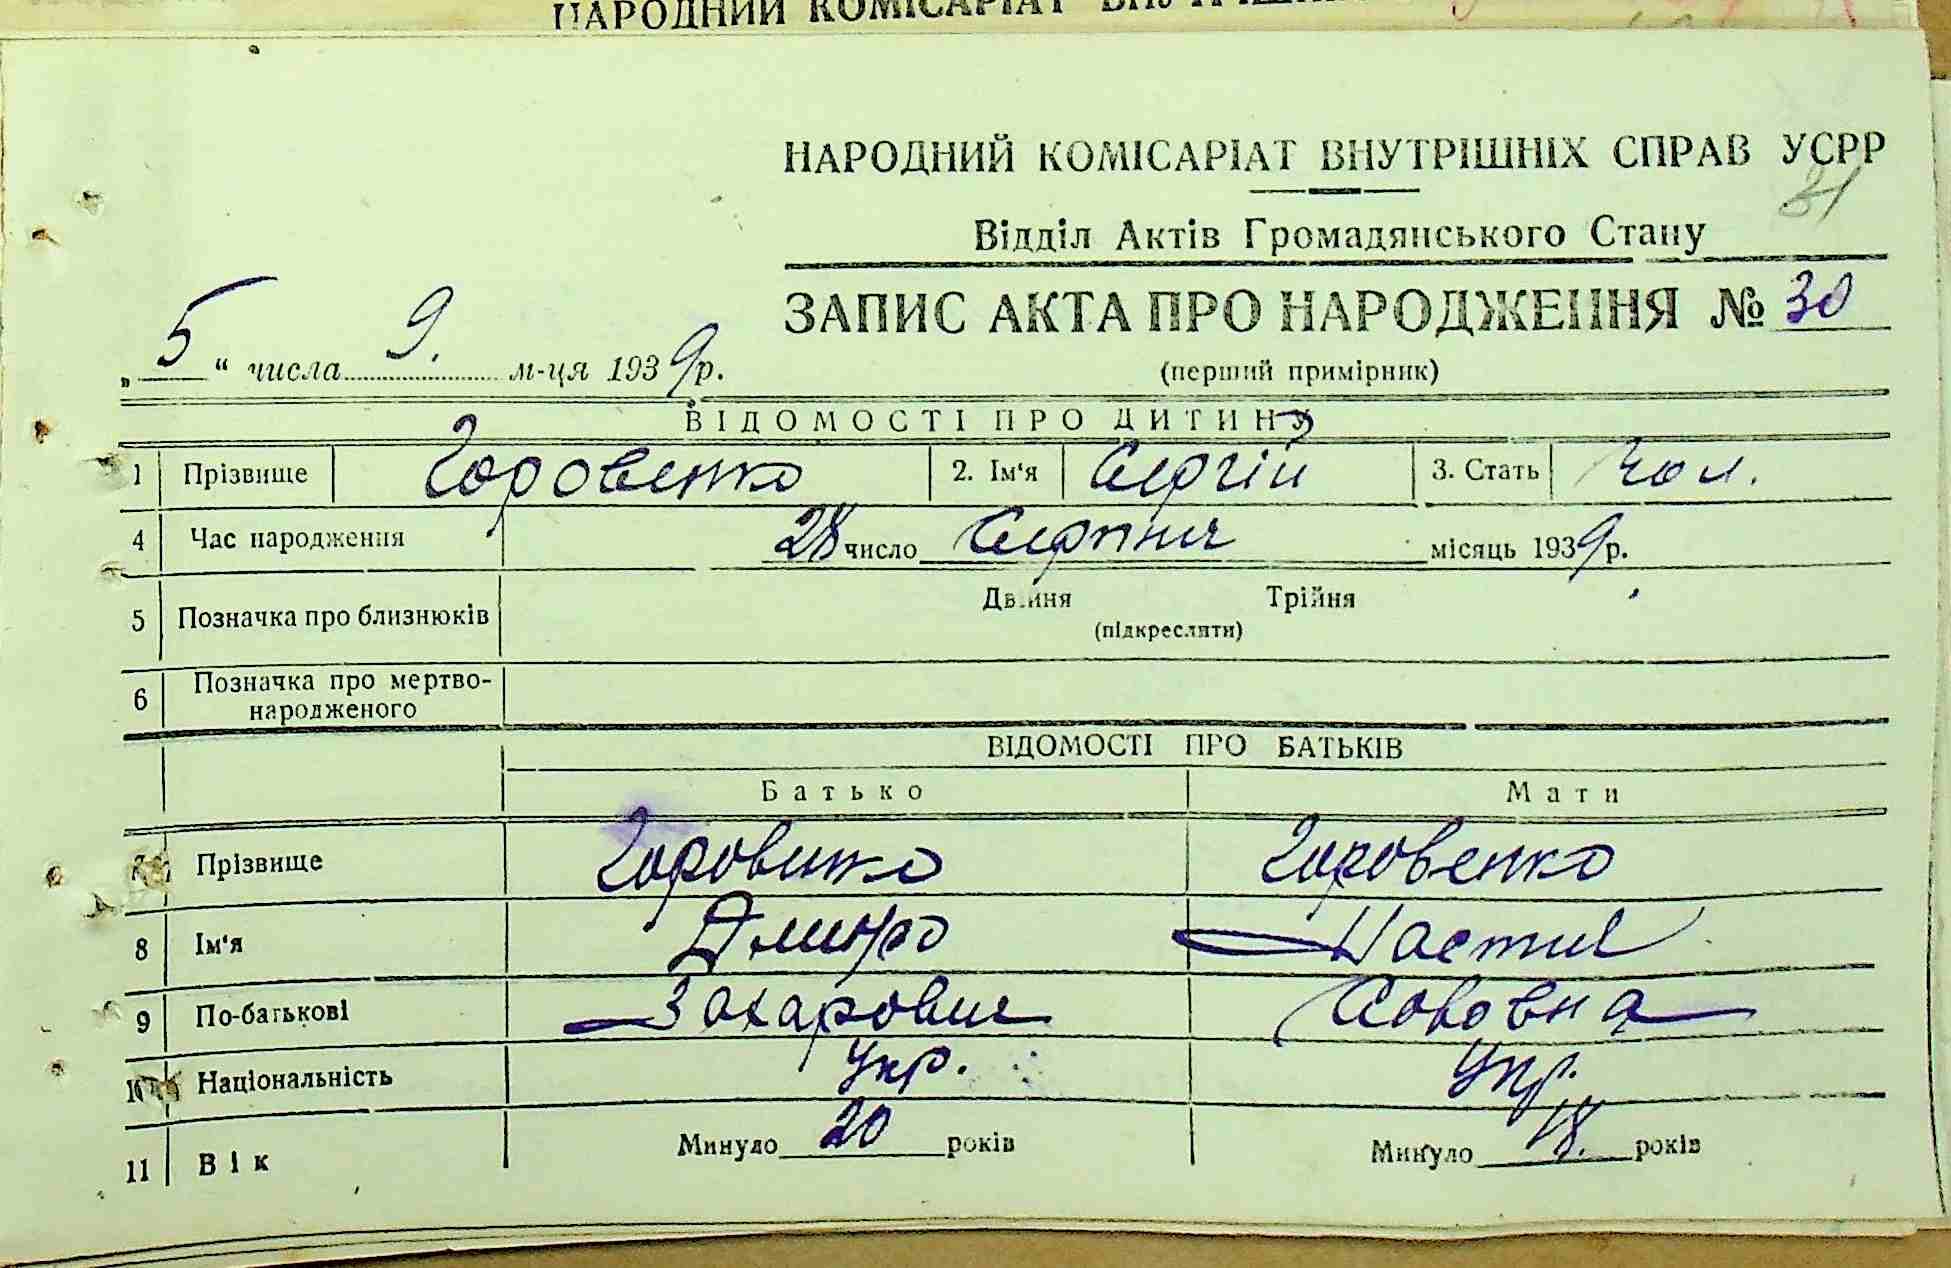 НАРОДНИЙ КОМІСАРІАТ
НАРОДНИЙ КОМІСАРІАТ ВНУТРІШНІХ СПРАВ УСРР
31
Відділ Актів Громадянського Стану
ЗАПИС АКТА ПРО НАРОДЖЕННЯ № 30
(перший примірник)
„5“ числа 9. м-ця 1939 р.
ВІДОМОСТІ ПРО ДИТИНУ
1 Прізвище Горовенко 2. Ім'я Сергій 3. Стать Чол.
4 Час народження 28 число Серпня місяць 1939 р.
5 Позначка про близнюків Двійня Трійня
(підкреслити)
6 Позначка про мертво-
народженого
ВІДОМОСТІ ПРО БАТЬКІВ
Батько Мати
7 Прізвище Горовенко Горовенко
8 Ім'я Дмитро Настя
9 По-батькові Захарович
10 Національність Укр. Укр.
11 Вік Минуло 20 років Минуло 18. років